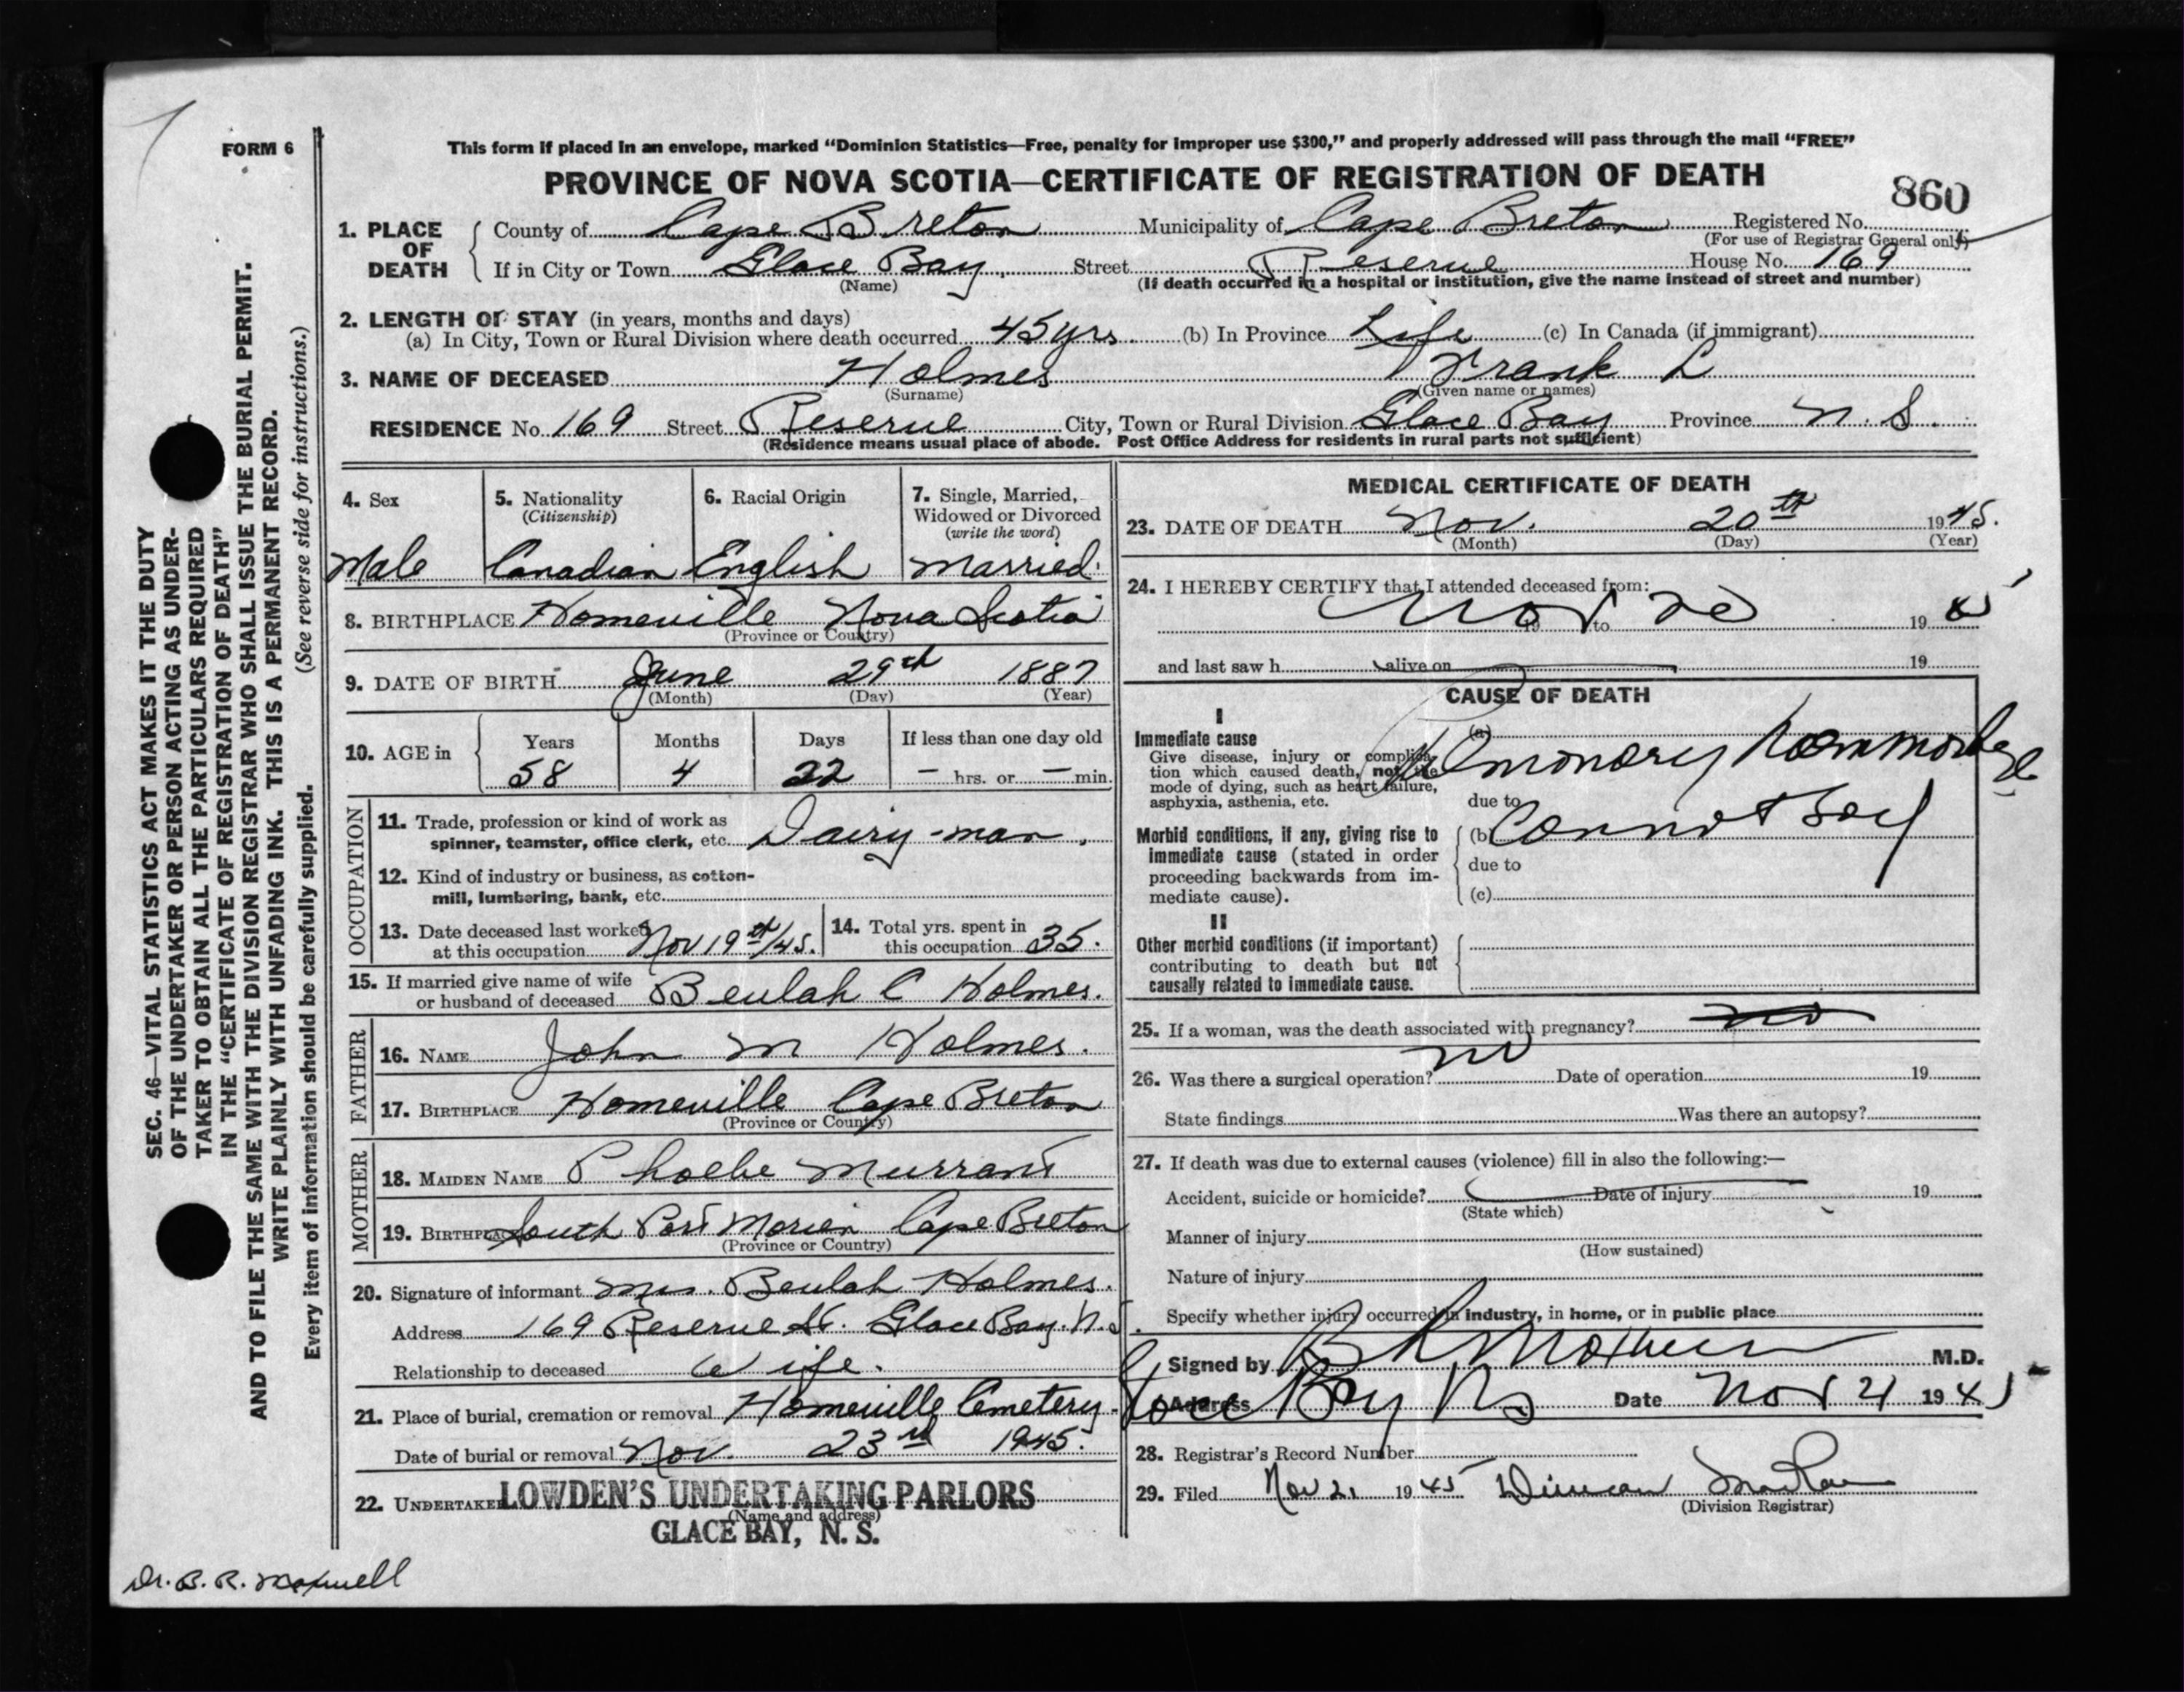 FORM 6
This form if placed in an envelope, marked “Dominion Statistics—Free, penalty for improper use $300,” and properly addressed will pass through the mail “FREE”
PROVINCE OF NOVA SCOTIA—CERTIFICATE OF REGISTRATION OF DEATH
860
1. PLACE OF DEATH
County of Cape Breton Municipality of Cape Breton Registered No.
(For use of Registrar General only)
If in City or Town Glace Bay. Street Reserve House No. 169
(Name) (If death occurred in a hospital or institution, give the name instead of street and number)
2. LENGTH OF STAY (in years, months and days)
(a) In City, Town or Rural Division where death occurred 45 yrs. (b) In Province Life (c) In Canada (if immigrant)
3. NAME OF DECEASED Holmes Frank L
(Surname) (Given name or names)
RESIDENCE No. 169 Street Reserve City, Town or Rural Division Glace Bay Province N. S.
(Residence means usual place of abode. Post Office Address for residents in rural parts not sufficient)
4. Sex
Male
5. Nationality
(Citizenship)
Canadian
6. Racial Origin
English
7. Single, Married,
Widowed or Divorced
(write the word)
Married.
8. BIRTHPLACE Homeville Nova Scotia
(Province or Country)
9. DATE OF BIRTH June 29th 1887
(Month) (Day) (Year)
10. AGE in
Years Months Days If less than one day old
58 4 22 – hrs. or – min.
OCCUPATION
11. Trade, profession or kind of work as
spinner, teamster, office clerk, etc. Dairy-man.
12. Kind of industry or business, as cotton-
mill, lumbering, bank, etc.
13. Date deceased last worked
at this occupation Nov 19th/45.
14. Total yrs. spent in
this occupation 35.
15. If married give name of wife
or husband of deceased Beulah C Holmes.
FATHER
16. NAME John M Holmes.
17. BIRTHPLACE Homeville Cape Breton
(Province or Country)
MOTHER
18. MAIDEN NAME Phoebe Murrant
19. BIRTHPLACE South Port Morien Cape Breton
(Province or Country)
20. Signature of informant Mrs. Beulah Holmes.
Address 169 Reserve St. Glace Bay. N.S.
Relationship to deceased Wife.
21. Place of burial, cremation or removal Homeville Cemetery.
Date of burial or removal Nov. 23rd 1945.
22. UNDERTAKER LOWDEN'S UNDERTAKING PARLORS
(Name and address)
GLACE BAY, N. S.
MEDICAL CERTIFICATE OF DEATH
23. DATE OF DEATH Nov. 20th 1945.
(Month) (Day) (Year)
24. I HEREBY CERTIFY that I attended deceased from:
Nov 20 19 to 1945
and last saw h alive on 19
CAUSE OF DEATH
I
Immediate cause
Give disease, injury or complica-
tion which caused death, not the
mode of dying, such as heart failure,
asphyxia, asthenia, etc.
(a) Pulmonary haemmorhage
due to
Morbid conditions, if any, giving rise to
immediate cause (stated in order
proceeding backwards from im-
mediate cause).
(b) Cannot say
due to
(c)
II
Other morbid conditions (if important)
contributing to death but not
causally related to immediate cause.
25. If a woman, was the death associated with pregnancy? no
26. Was there a surgical operation? no Date of operation 19
State findings Was there an autopsy?
27. If death was due to external causes (violence) fill in also the following:—
Accident, suicide or homicide? Date of injury 19
(State which)
Manner of injury
(How sustained)
Nature of injury
Specify whether injury occurred in industry, in home, or in public place
Signed by B R Maxwell M.D.
Address Glace Bay NS Date Nov 21 1945
28. Registrar's Record Number
29. Filed Nov 21 1945 Duncan
(Division Registrar)
Dr. B. R. Maxwell
SEC. 46—VITAL STATISTICS ACT MAKES IT THE DUTY
OF THE UNDERTAKER OR PERSON ACTING AS UNDER-
TAKER TO OBTAIN ALL THE PARTICULARS REQUIRED
IN THE “CERTIFICATE OF REGISTRATION OF DEATH”
AND TO FILE THE SAME WITH THE DIVISION REGISTRAR WHO SHALL ISSUE THE BURIAL PERMIT.
WRITE PLAINLY WITH UNFADING INK. THIS IS A PERMANENT RECORD.
Every item of information should be carefully supplied. (See reverse side for instructions.)